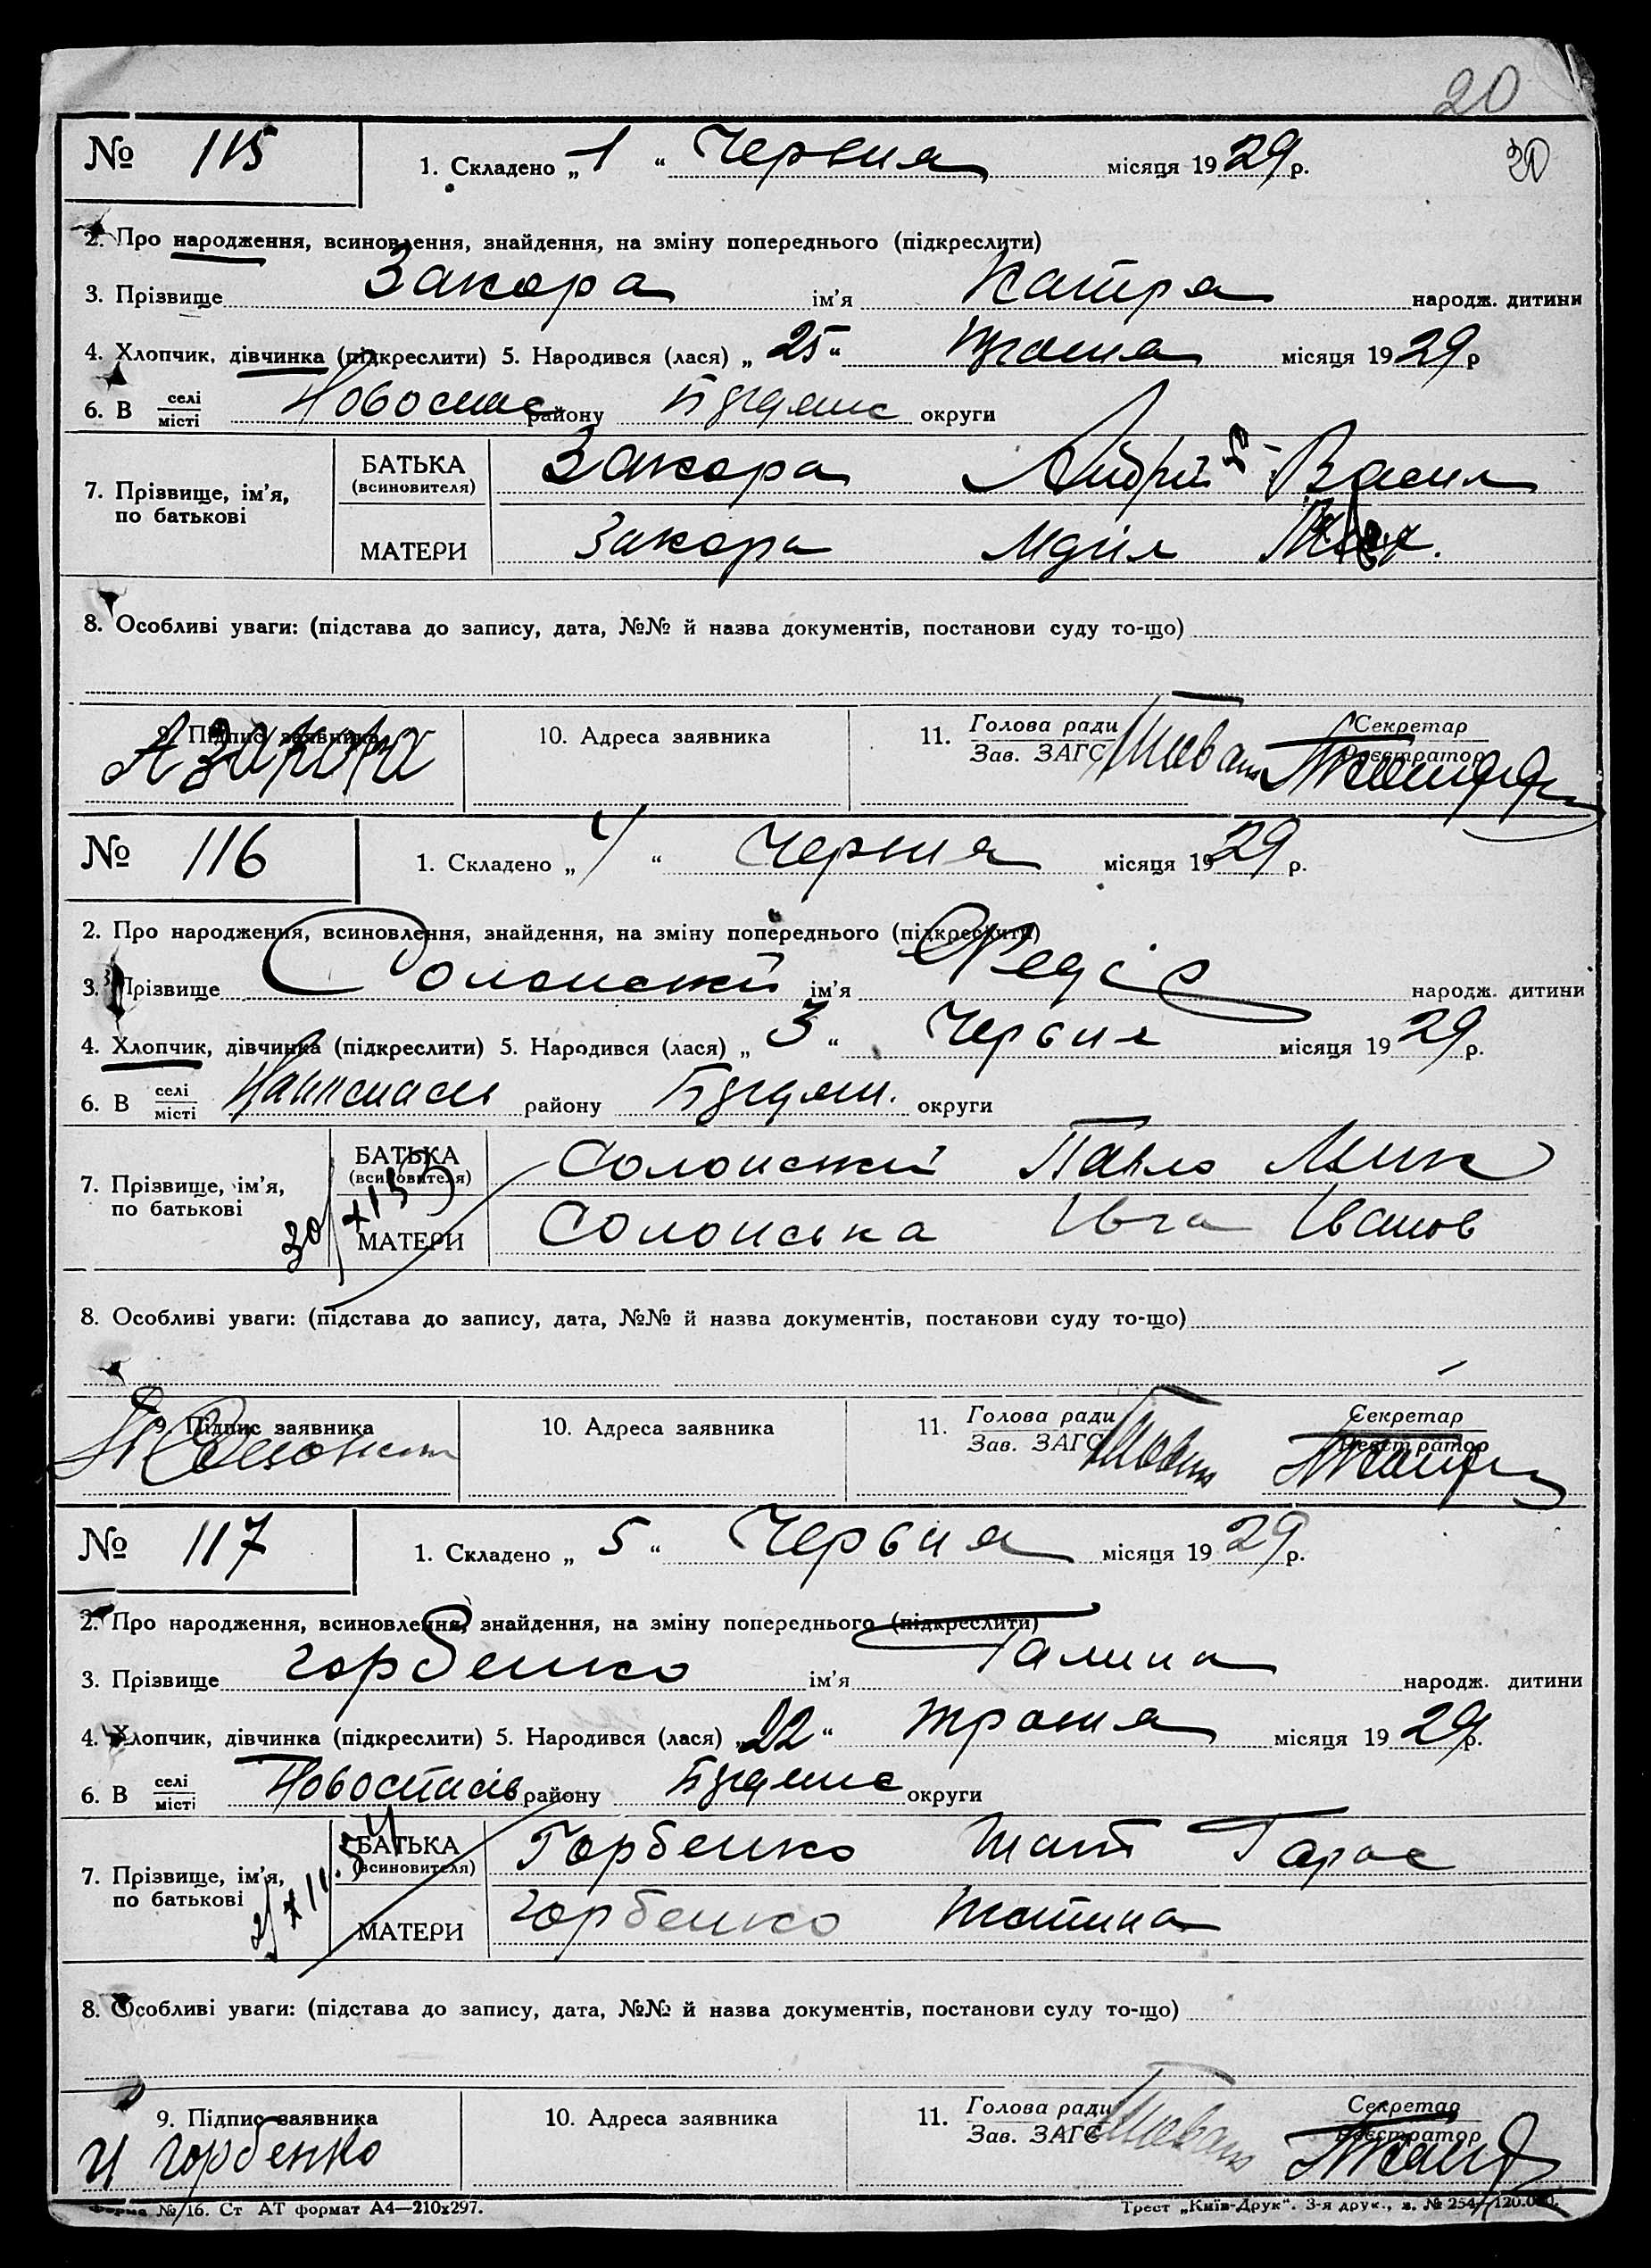 20
№ 115 1. Складено „ 1 “ Червня місяця 1929 р. 20
2. Про народження, всиновлення, знайдення, на зміну попереднього (підкреслити)
3. Прізвище Закора ім'я Катря народж. дитини
4. Хлопчик, дівчинка (підкреслити) 5. Народився (лася) „ 25 “ травня місяця 1929 р
6. В селі місті Новоспас району округи
7. Прізвище, ім'я, по батькові БАТЬКА (всиновителя) Закора Андрій Васил
МАТЕРИ Закора
8. Особливі уваги: (підстава до запису, дата, №№ й назва документів, постанови суду то-що)
9. Підпис заявника 10. Адреса заявника 11. Голова ради Зав. ЗАГС Секретар Реєстратор
А Закора
№ 116 1. Складено „ 4 “ Червня місяця 1929 р.
2. Про народження, всиновлення, знайдення, на зміну попереднього (підкреслити)
3. Прізвище Солонский ім'я Федір народж. дитини
4. Хлопчик, дівчинка (підкреслити) 5. Народився (лася) „ 3 “ Червня місяця 1929 р.
6. В селі місті району округи
7. Прізвище, ім'я, по батькові БАТЬКА (всиновителя) Солонский Павло Мик
МАТЕРИ Солонська Івга Іванов
8. Особливі уваги: (підстава до запису, дата, №№ й назва документів, постанови суду то-що)
9. Підпис заявника 10. Адреса заявника 11. Голова ради Зав. ЗАГС Секретар Реєстратор
№ 117 1. Складено „ 5 “ Червня місяця 1929 р.
2. Про народження, всиновлення, знайдення, на зміну попереднього (підкреслити)
3. Прізвище Горбенко ім'я Галина народж. дитини
4. Хлопчик, дівчинка (підкреслити) 5. Народився (лася) „ 22 “ травня місяця 1929 р.
6. В селі місті Новоспасів району округи
7. Прізвище, ім'я, по батькові БАТЬКА (всиновителя) Горбенко Тарас
МАТЕРИ Горбенко
8. Особливі уваги: (підстава до запису, дата, №№ й назва документів, постанови суду то-що)
9. Підпис заявника 10. Адреса заявника 11. Голова ради Зав. ЗАГС Секретар Реєстратор
И Горбенко
Форма № 16. Ст АТ формат А4—210х297. Трест „Київ-Друк“. 3-я друк., з. № 254—120.000.